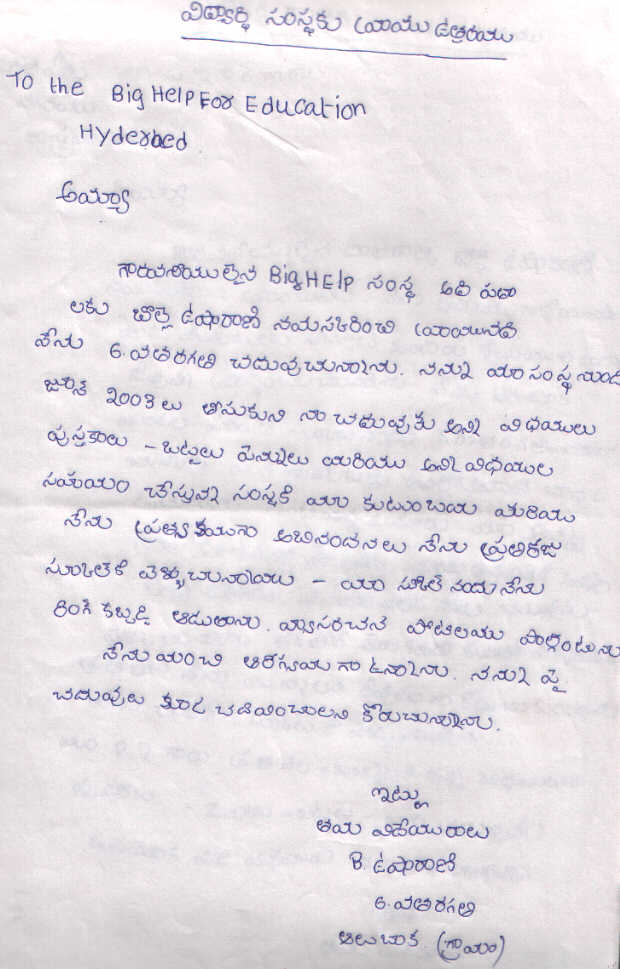 విద్యార్థి సంస్థకు వ్రాయు ఉత్తరము
To the Big HELP FOR Education
Hyderbed
అయ్యా
గౌరవనీయులైన Big HELP సంస్థ అది పదా
లకు బొల్లె ఉషారాణి నమస్కరించి వ్రాయునది
నేను 6. వతరగతి చదువుచున్నాను. నన్ను మా సంస్థ నుండి
జూన్ 2003 లు తీసుకుని నా చదువుకు అన్ని విధములు
పుస్తకాలు - బట్టలు పెన్నులు మరియు అన్ని విధముల
సహయం చేస్తున్న సంస్థకి మా కుటుంబము మరియు
నేను ప్రత్యకముగా అబినందనలు నేను ప్రతిరజు
వెళ్ళుచున్నాయు - నేను
రింగ్ కబ్బడి ఆడుతాను. వ్యాసరచన పోటిలయు పాల్గొంటును
నేను మంచి ఆరగ్యము గా ఉన్నాను. నన్ను పై
చదువులు కూడ చదివించులని కోరుచున్నాను.
ఇట్లు
తమ విదేయురాలు
B. ఉషారాణి
6. వతరగతి
ఆలుబాక (గ్రామం)